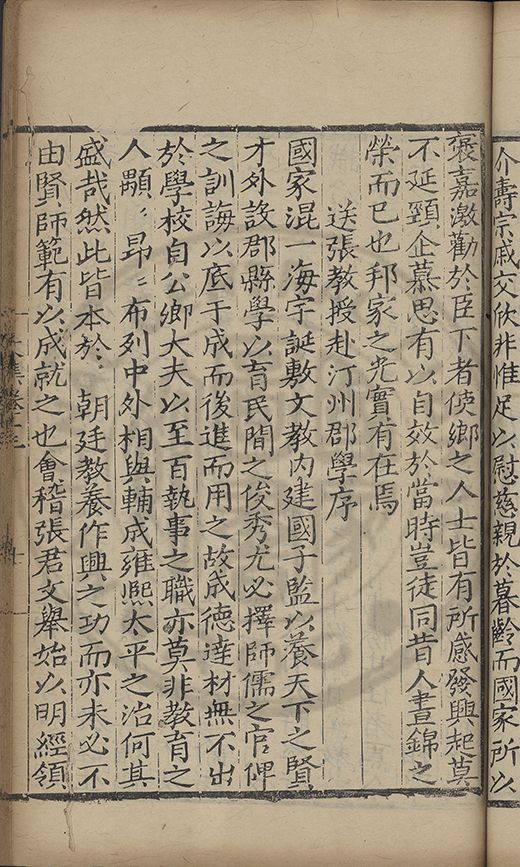 介壽宗戚交欣非惟足以慰慈親於暮齡而國家所以
褒嘉激勸於臣下者使鄉之人士皆有所感發興起莫
不延頸企慕思有以自效於當時豈徒同昔人晝錦之
榮而已也邦家之光實有在焉
送張教授赴汀州郡學序
國家混一海宇誕敷文教內建國子監以養天下之賢
才外設郡縣學以育民間之俊秀尤必擇師儒之官俾
之訓誨以底于成而後進而用之故成德達材無不出
於學校自公卿大夫以至百執事之職亦莫非教育之
人顒〻昂〻布列中外相與輔成雍熙太平之治何其
盛哉然此皆本於朝廷教養作興之功而亦未必不
由賢師範有以成就之也會稽張君文舉始以明經領